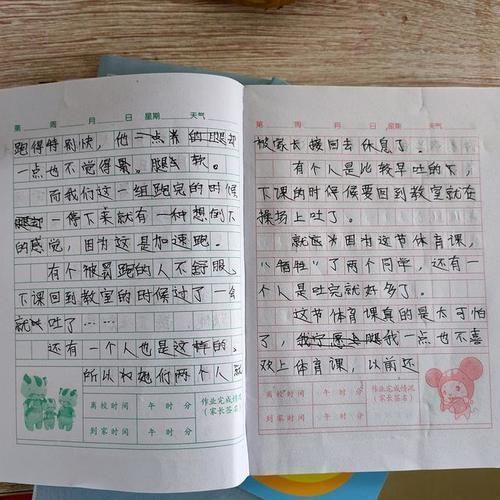 第 周 月 日 星期 天气
跑得特别快，他一点米的腿却
一点也不觉得累。腿不软。
而我们这一组跑完的时候
一停下来就有一种想倒下
的感觉，因为这是加速跑。
有个被罚跑的人不舒服，
下课回到教室的时候过了一会
就吐了……
还有一个人也是这样的。
所以为她们两个人就
离校时间 午 时 分 作业完成情况
(家长签名)
到家时间 午 时 分
第 周 月 日 星期 天气
被家长接回去休息了
有个人是比较早吐的下，
下课的时候候要回到教室就在
操场上吐了。
就应为因为这节体育课，
“牺牲”了两个同学，还有一
个人是吐完就好多了。
这节体育课真的是太可怕
了，我一点也不喜
欢上体育课，以前还
离校时间 午 时 分 作业完成情况
(家长签名)
到家时间 午 时 分